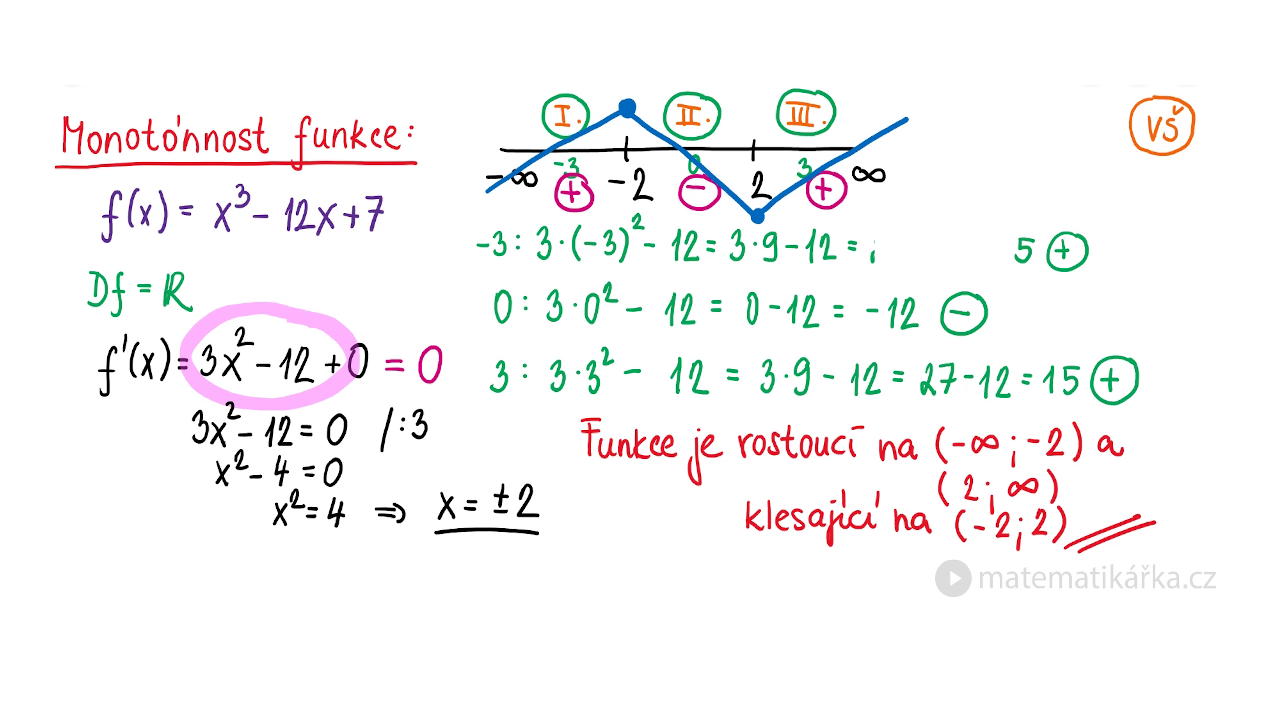 Monotónnost funkce:
f(x) = x³ - 12x + 7
Df = ℝ
f'(x) = 3x² - 12 + 0 = 0
3x² - 12 = 0 / : 3
x² - 4 = 0
x² = 4 ⇒ x = ±2
I. II. III.
-3 0 3
-∞ + -2 - 2 + ∞
-3 : 3·(-3)² - 12 = 3·9 - 12 = 5 +
0 : 3·0² - 12 = 0 - 12 = -12 -
3 : 3·3² - 12 = 3·9 - 12 = 27 - 12 = 15 +
Funkce je rostoucí na (-∞ ; -2) a
(2 ; ∞)
klesající na (-2 ; 2)
VŠ
matematikářka.cz